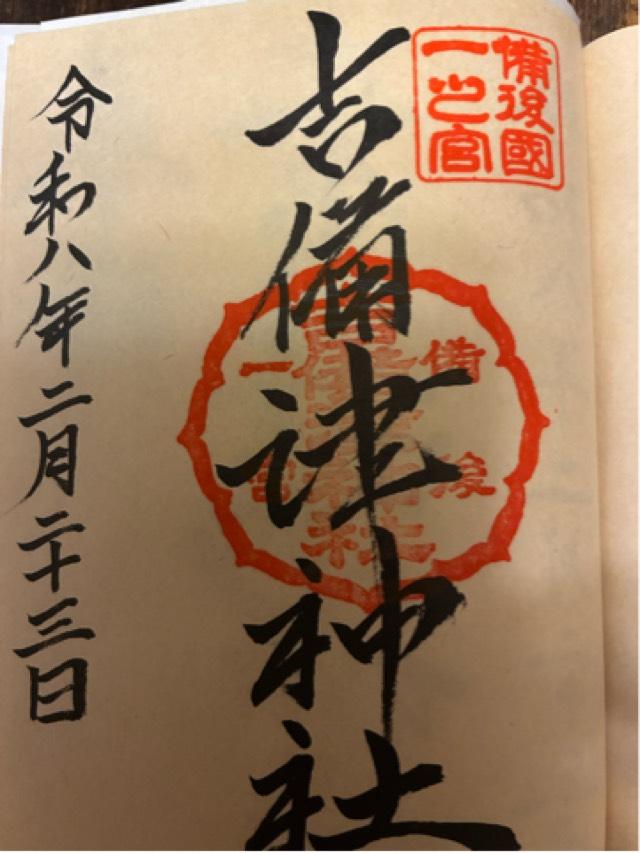 備後國
一之宮
吉備津神社
備後
一宮
吉備津神社
令和八年二月二十三日